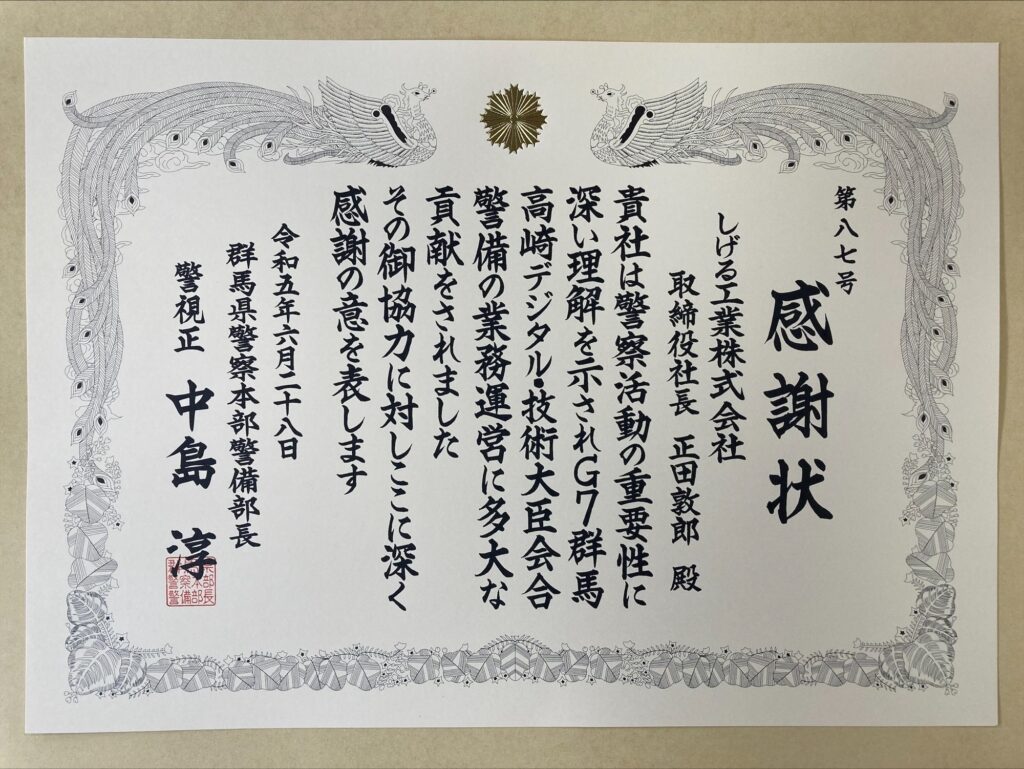 第八七号
感謝状
しげる工業株式会社
取締役社長 正田敦郎 殿
貴社は警察活動の重要性に
深い理解を示されG7群馬
高崎デジタル・技術大臣会合
警備の業務運営に多大な
貢献をされました
その御協力に対しここに深く
感謝の意を表します
令和五年六月二十八日
群馬県警察本部警備部長
警視正 中島 淳